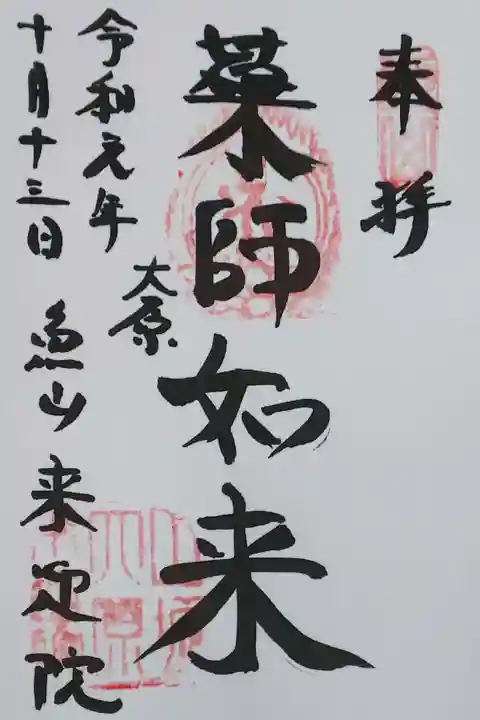 奉拝
薬師如来
大原
令和元年
十月十三日
魚山来迎院